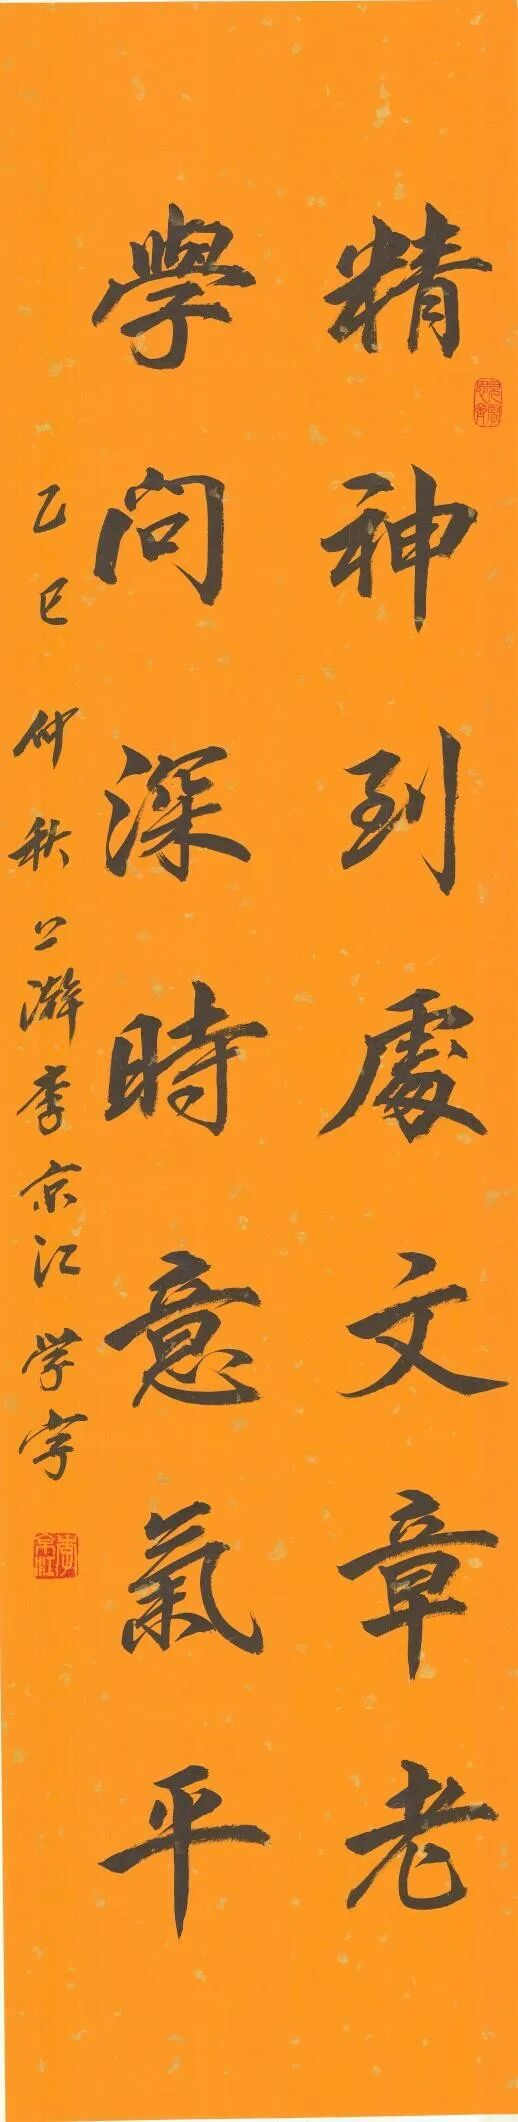 精神到處文章老
學問深時意氣平
乙巳仲秋上澣李京江学字